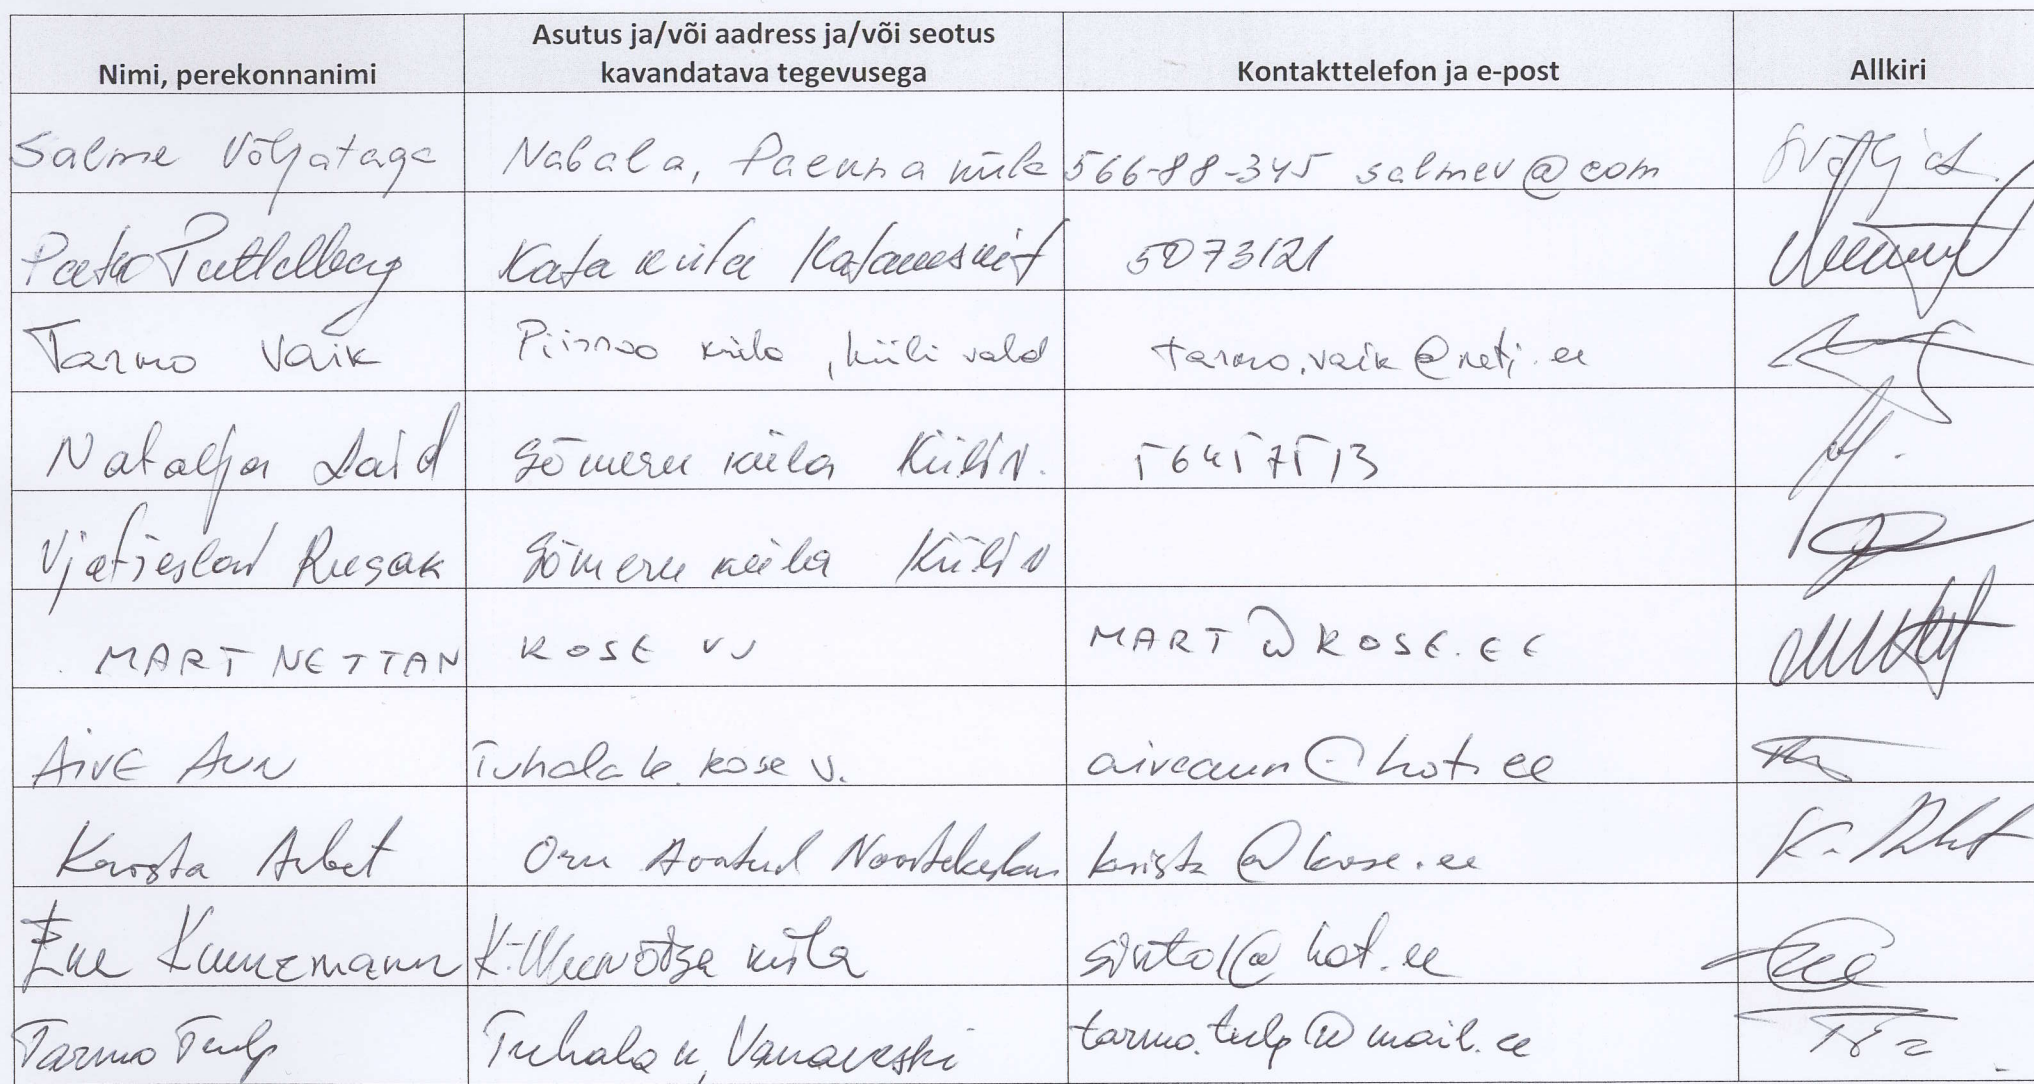 Nimi, perekonnanimi
Asutus ja/või aadress ja/või seotus
kavandatava tegevusega
Kontakttelefon ja e-post
Allkiri
Salme Võljataga Nabala, Paekna küla 566-88-345 salmev@com
Kata küla 5073121
Tarmo Vaik küla, Kiili vald tarmo.vaik@neti.ee
Natalja Laid Sõmeru küla Kiili v. 56457513
Rusak Sõmeru küla Kiili v
MART NETTAN KOSE VV MART@KOSE.EE
AivE AUN Tuhala k. Kose v. aiveaun@hot.ee
Krista Arbet Oru Avatud Noortekeskus krista@kose.ee
Ene küla @hot.ee
Tarmo Tulp Tuhala k, Vanaveski tarmo.tulp@mail.ee